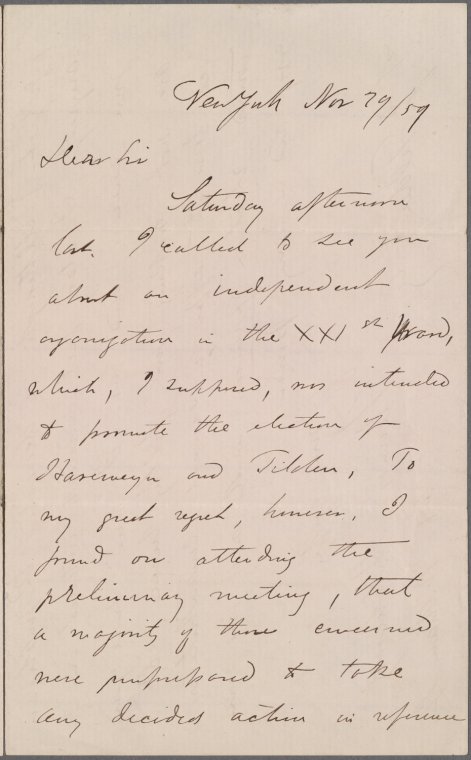 New York Nov 29/59
Dear Sir
Saturday afternoon
last I called to see you
about an independent
organization in the XXIst Ward,
which, I supposed, was intended
to promote the election of
Havemeyer and Tilden, To
my great regret, however, I
found on attending the
preliminary meeting, that
a majority of those concerned
were unprepared to take
any decided action in reference